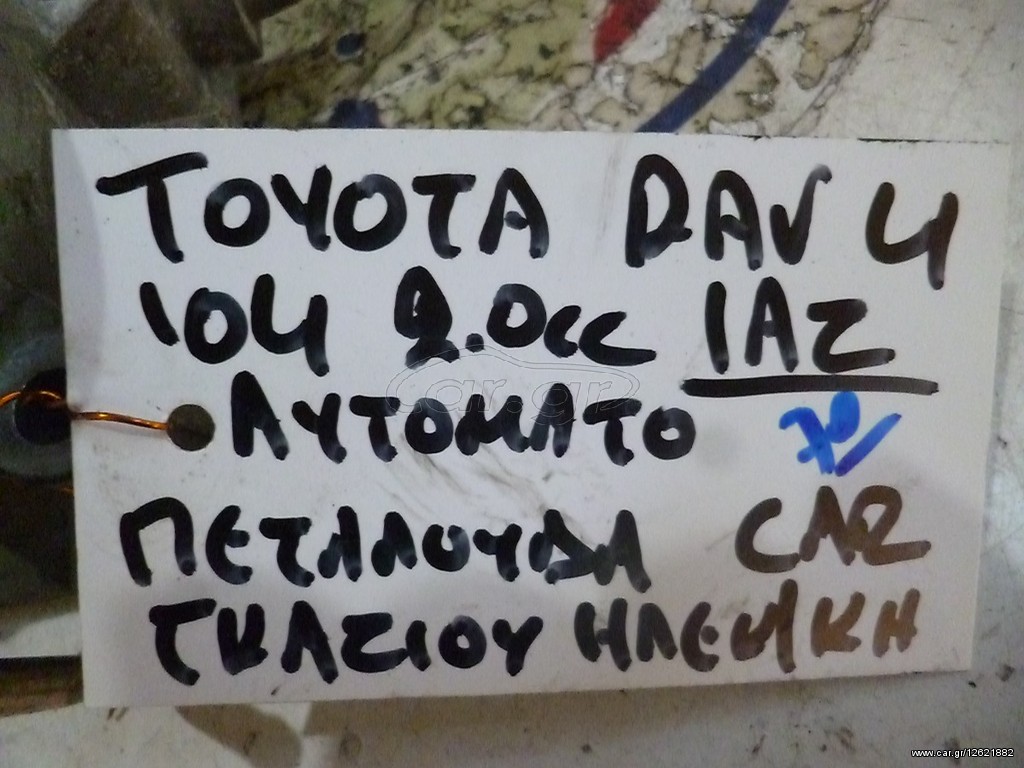 TOYOTA RAV 4
'04 2.0cc 1AZ
ΑΥΤΟΜΑΤΟ
ΠΕΤΑΛΟΥΔΑ CAR
ΓΚΑΖΙΟΥ ΗΛΕΚ/ΚΗ
car.gr
www.car.gr/12621882